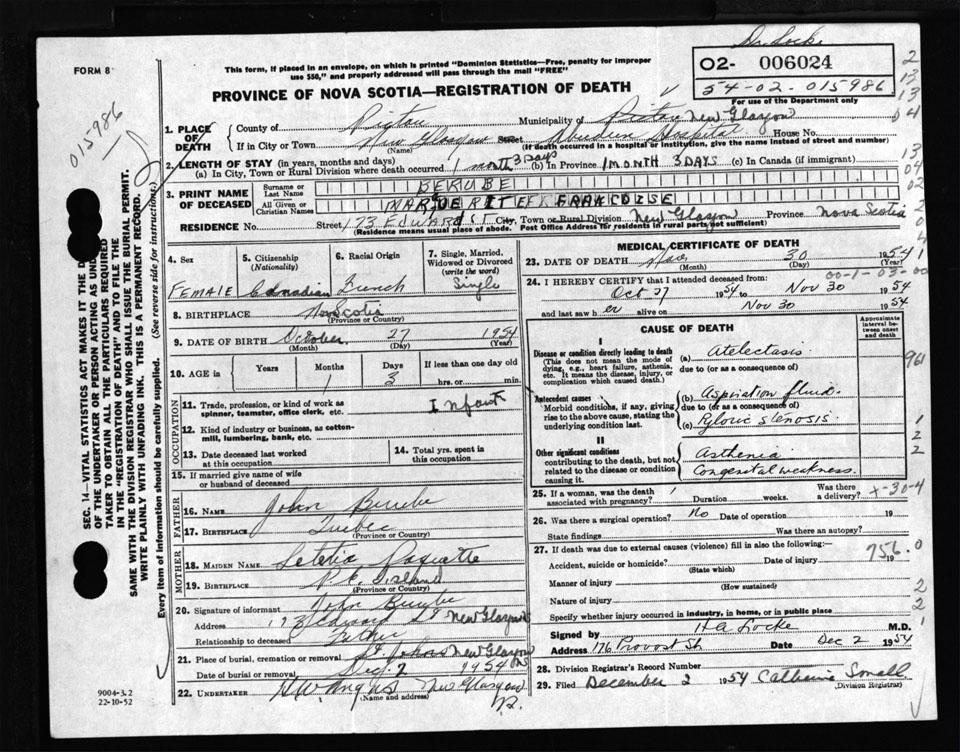 Dr. Locke
FORM 8
This form, if placed in an envelope, on which is printed "Dominion Statistics—Free, penalty for improper
use $50," and properly addressed will pass through the mail "FREE"
02- 006024
54-02-015986
For use of the Department only
PROVINCE OF NOVA SCOTIA—REGISTRATION OF DEATH
015986
1. PLACE OF DEATH
County of Pictou Municipality of Pictou New Glasgow
If in City or Town New Glasgow Street Aberdeen Hospital House No.
(Name) (If death occurred in a hospital or institution, give the name instead of street and number)
2. LENGTH OF STAY (in years, months and days)
(a) In City, Town or Rural Division where death occurred 1 month 3 days (b) In Province 1 MONTH 3 DAYS (c) In Canada (if immigrant)
3. PRINT NAME OF DECEASED
Surname or Last Name BERUBE
All Given or Christian Names MARGUERITE FRANCOISE
RESIDENCE No. Street 173 Edward St City, Town or Rural Division New Glasgow Province Nova Scotia
(Residence means usual place of abode. Post Office Address for residents in rural parts not sufficient)
4. Sex
FEMALE
5. Citizenship (Nationality)
Canadian
6. Racial Origin
French
7. Single, Married, Widowed or Divorced (write the word)
Single
8. BIRTHPLACE Nova Scotia
(Province or Country)
9. DATE OF BIRTH October 27 1954
(Month) (Day) (Year)
10. AGE in Years Months Days If less than one day
1 3 hrs. or min.
OCCUPATION
11. Trade, profession, or kind of work as spinner, teamster, office clerk, etc. Infant
12. Kind of industry or business, as cotton-mill, lumbering, bank, etc.
13. Date deceased last worked at this occupation
14. Total yrs. spent in this occupation
15. If married give name of wife or husband of deceased
FATHER
16. NAME John Berube
17. BIRTHPLACE Quebec
(Province or Country)
MOTHER
18. MAIDEN NAME Paquette
19. BIRTHPLACE P.E. Island
(Province or Country)
20. Signature of informant John Berube
Address 173 Edward St New Glasgow
Relationship to deceased Father
21. Place of burial, cremation or removal St. Johns New Glasgow
Date of burial or removal Dec. 2 1954 NS
22. UNDERTAKER New Glasgow
(Name and Address)
9004-3.2
22-10-52
MEDICAL CERTIFICATE OF DEATH
23. DATE OF DEATH Nov 30 1954
(Month) (Day) (Year)
00-1-03-00
24. I HEREBY CERTIFY that I attended deceased from:
Oct 27 1954 to Nov 30 1954
and last saw her alive on Nov 30 1954
CAUSE OF DEATH
Approximate interval between onset and death
I
Disease or condition directly leading to death (a) Atelectasis
(This does not mean the mode of dying, e.g., heart failure, asthenia, etc. It means the disease, injury, or complication which caused death.)
due to (or as a consequence of)
Antecedent causes (b) Aspiration fluid
Morbid conditions, if any, giving rise to the above cause, stating the underlying condition last.
due to (or as a consequence of)
(c) Pyloric stenosis
II
Other significant conditions Asthenia
contributing to the death, but not related to the disease or condition causing it.
Congenital weakness.
25. If a woman, was the death associated with pregnancy? Duration weeks. Was there a delivery? x-30-4
26. Was there a surgical operation? No Date of operation 19
State findings Was there an autopsy?
27. If death was due to external causes (violence) fill in also the following:
Accident, suicide or homicide? Date of injury 19
756.0
(State which)
Manner of injury
(How sustained)
Nature of injury
Specify whether injury occurred in industry, in home, or in public place
Signed by H A Locke M.D.
Address 176 Provost St. Date Dec 2 1954
28. Division Registrar's Record Number
29. Filed December 2 1954 Catherine Small
(Division Registrar)
SEC. 14—VITAL STATISTICS ACT MAKES IT THE
OF THE UNDERTAKER OR PERSON ACTING AS
TAKER TO OBTAIN ALL THE PARTICULARS REQUIRED
IN THE "REGISTRATION OF DEATH" AND TO FILE THE
SAME WITH THE DIVISION REGISTRAR WHO SHALL ISSUE THE BURIAL PERMIT.
WRITE PLAINLY WITH UNFADING INK. THIS IS A PERMANENT RECORD.
Every item of information should be carefully supplied. (See reverse side for instructions.)